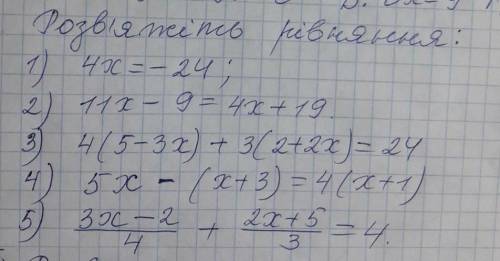 Розв'яжіть рівняння:
1) 4x = - 24;
2) 11x - 9 = 4x + 19.
3) 4(5-3x) + 3(2+2x) = 24
4) 5x - (x+3) = 4(x+1)
5) \frac{3x-2}{4} + \frac{2x+5}{3} = 4.